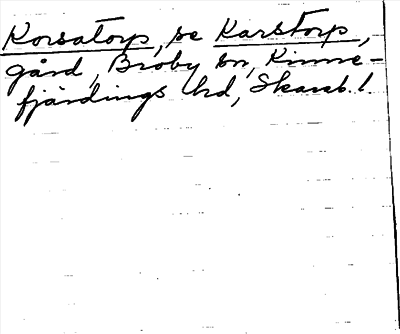 Korsatorp, se Karstorp,
gård, Broby sn, Kinne-
fjärdings hd, Skarab. l.